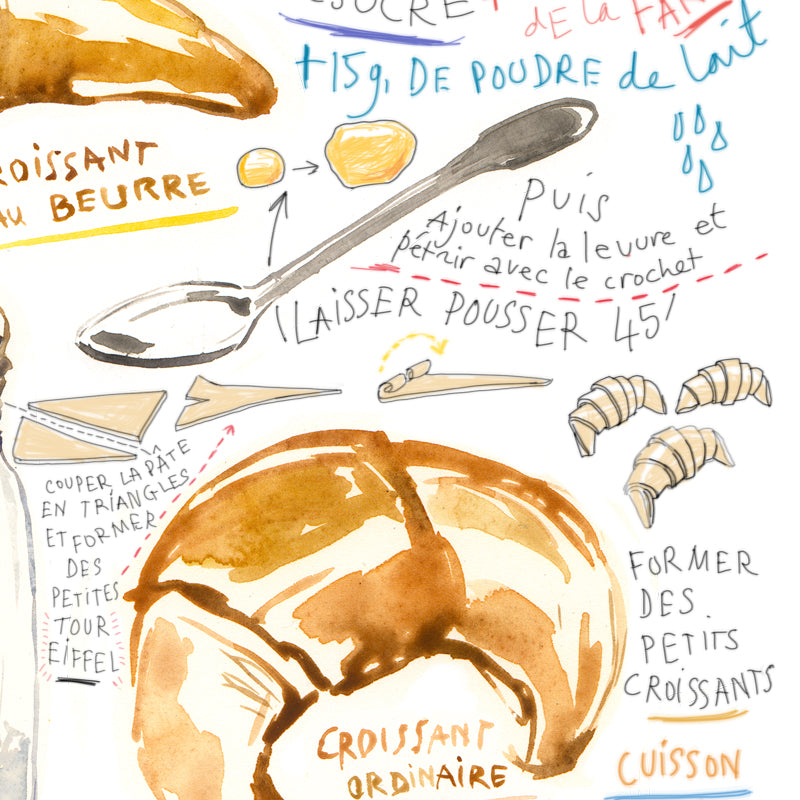 SUCRE
de la
+15g. DE POUDRE de lait
CROISSANT
AU BEURRE
puis
Ajouter la levure et
pétrir avec le crochet
LAISSER POUSSER 45'
COUPER LA PÂTE
EN TRIANGLES
ET FORMER
DES
PETITES
TOUR
EIFFEL
FORMER
DES
PETITS
CROISSANTS
CROISSANT
ORDINAIRE
CUISSON